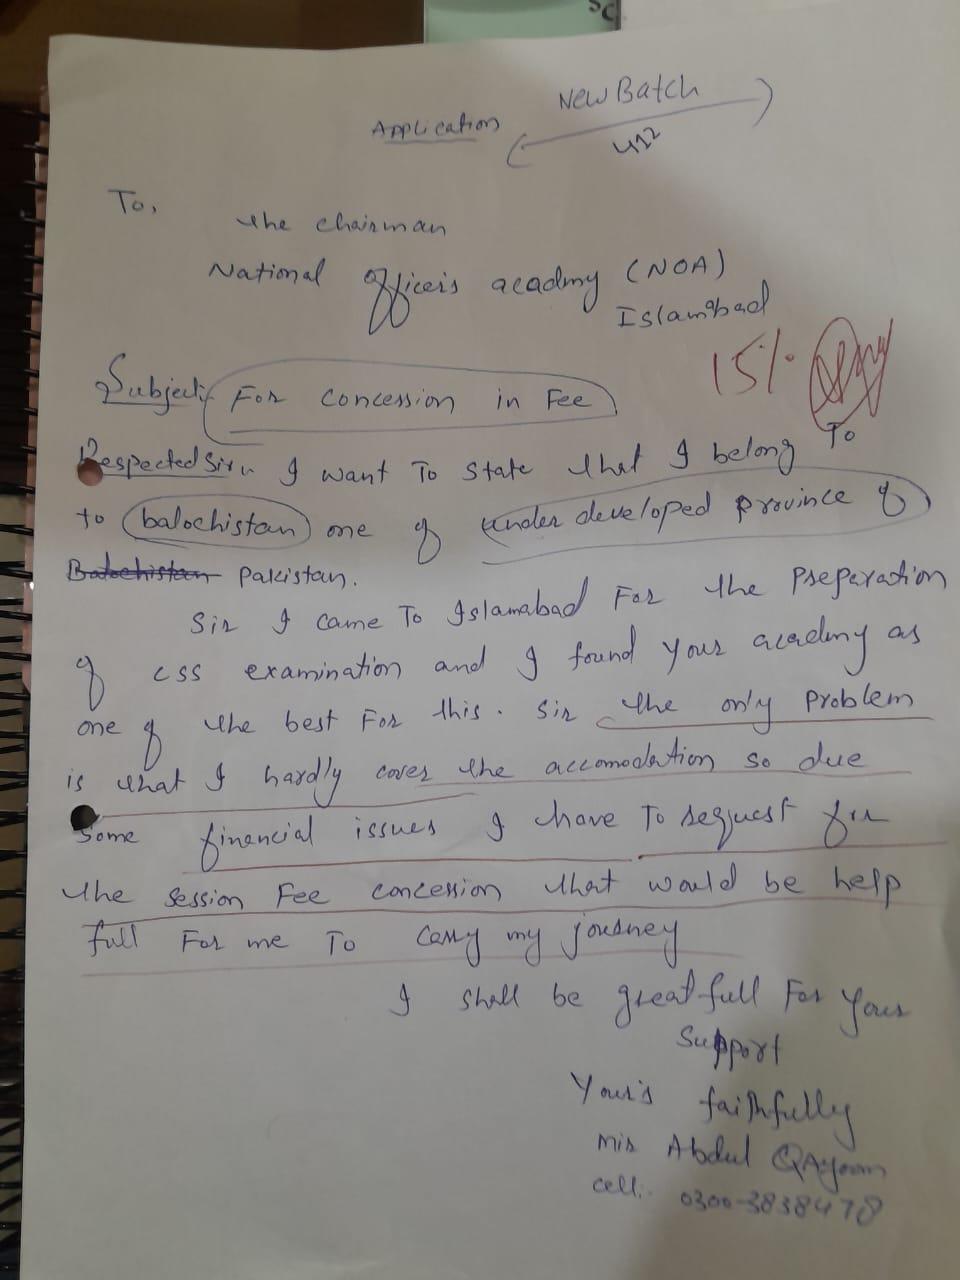 New Batch
Application
412
To,
the chairman
National officer's academy (NOA)
Islamabad
15%
Subject: For concession in Fee
Respected Sir I want To state that I belong To
to balochistan one of under developed province of
Balochistan Pakistan.
Sir I came To Islamabad For the Preparation
of CSS examination and I found your academy as
one of the best For this. Sir the only Problem
is that I hardly cover the accomodation so due
Some financial issues I have To request for
the session Fee concession that would be help
full For me To carry my journey
I shall be greatfull For your
Support
Your's faithfully
Mir Abdul QAyoom
cell:. 0300-3838478